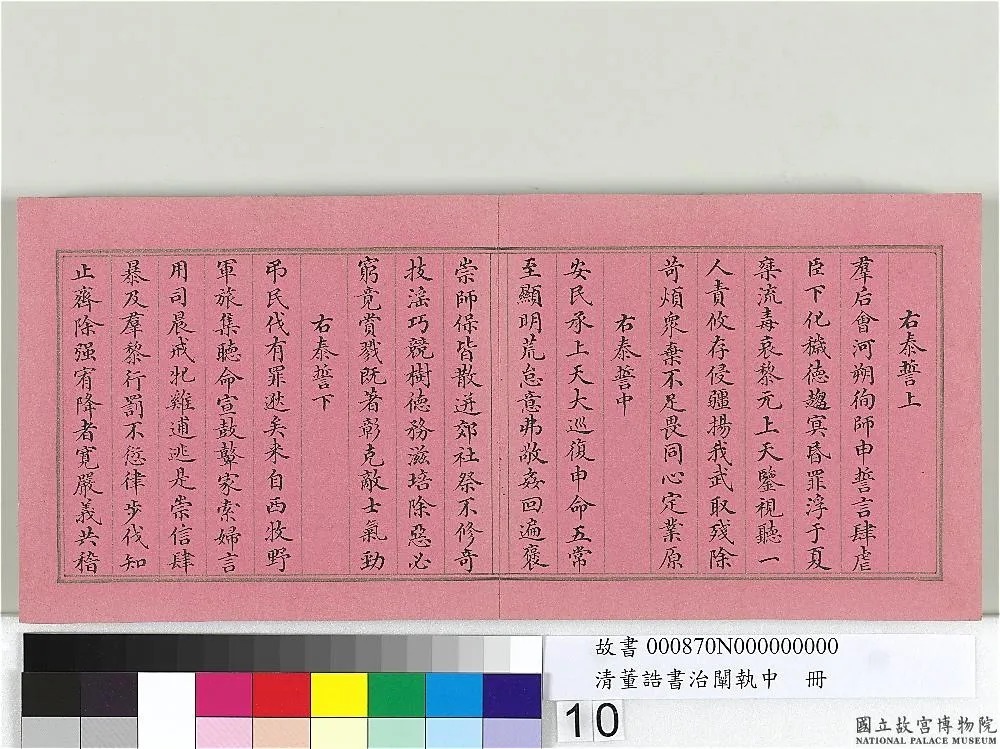 右泰誓上
羣后會河朔徇師申誓言肆虐
臣下化穢德趨冥昏罪浮于夏
桀流毒哀黎元上天鑒視聽一
人責攸存侵疆揚我武取殘除
苛煩衆棄不足畏同心定業原
右泰誓中
安民承上天大巡復申命五常
至顯明荒怠意弗敬姦回遍褒
崇師保皆散迸郊社祭不修奇
技滛巧競樹德務滋培除惡必
窮竟賞戮既著彰克敵士氣勁
右泰誓下
弔民伐有罪逖矣来自西牧野
軍旅集聽命宣鼓鼙家索婦言
用司晨戒牝雞逋逃是崇信肆
暴及羣黎行罰不愆律步伐知
止齊除强宥降者寛嚴義共稽
故書 000870N000000000
清董誥書治闡執中 冊
10
國立故宮博物院
NATIONAL PALACE MUSEUM